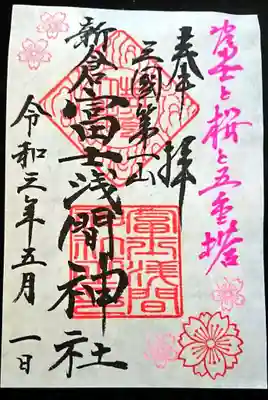 富士と桜と五重塔
奉拝
三國第一山
新倉富士浅間神社
令和三年五月一日